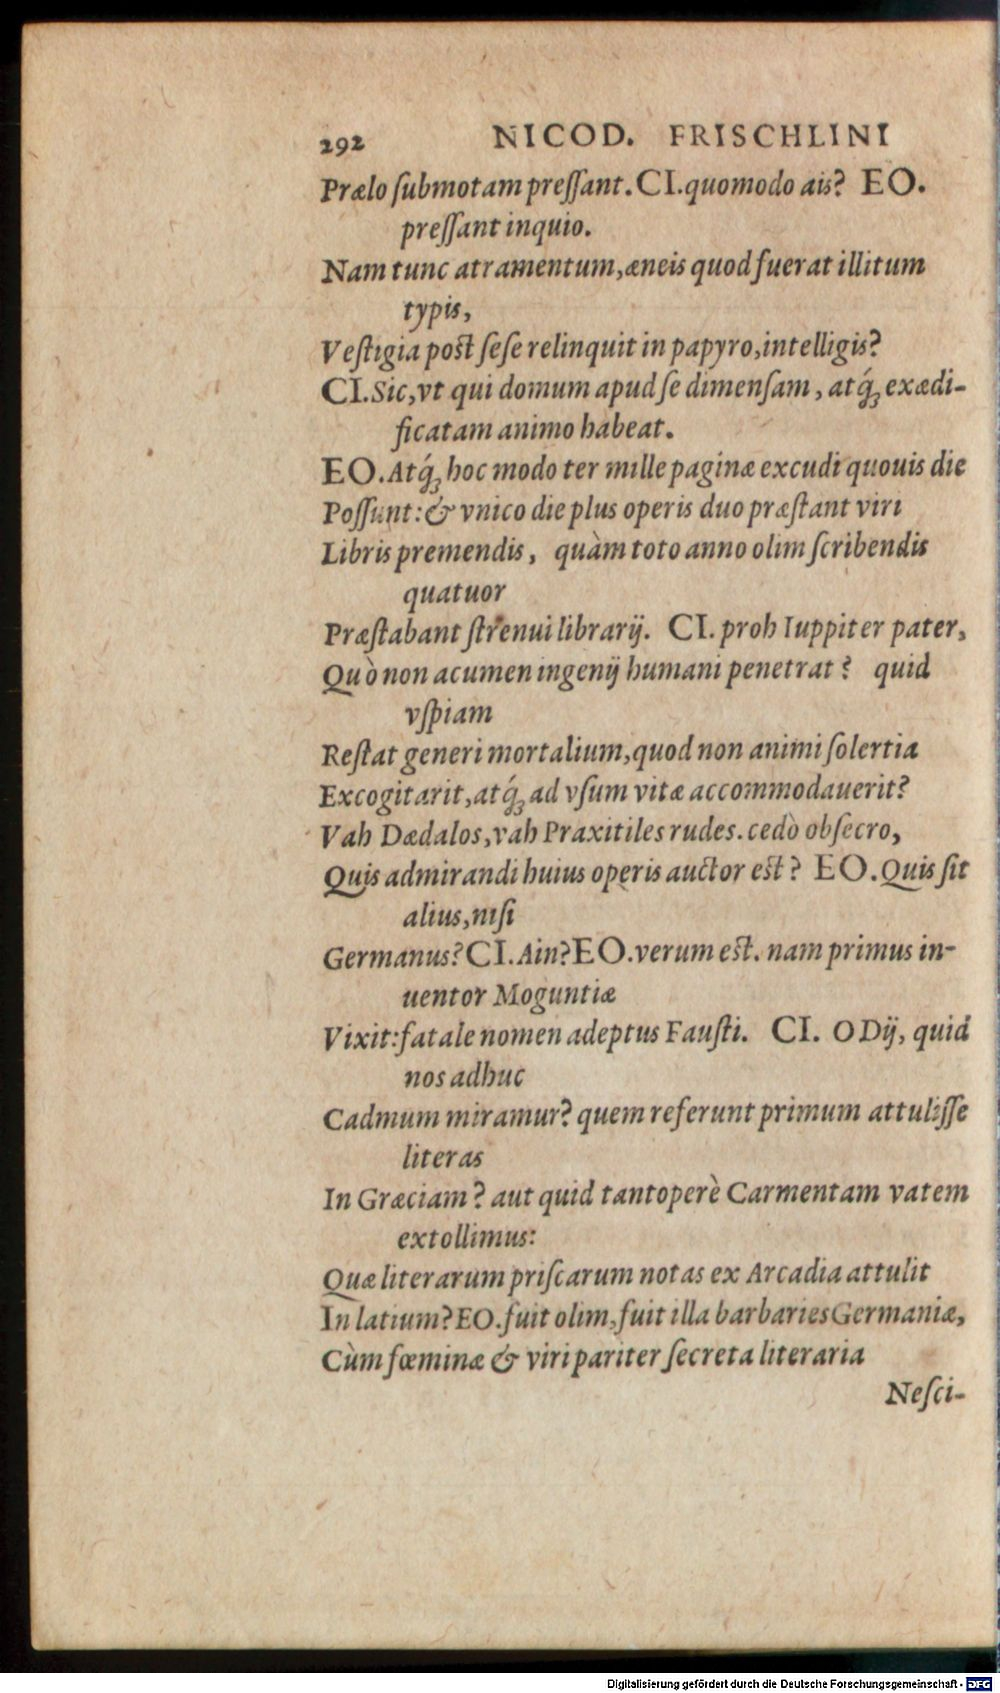 292 NICOD. FRISCHLINI
Prælo ſubmotam preſſant. CI. quomodo ais? EO.
preſſant inquio.
Nam tunc atramentum, æneis quod fuerat illitum
typis,
Veſtigia poſt ſeſe relinquit in papyro, intelligis?
CI. Sic, vt qui domum apud ſe dimenſam, atq́ꝫ exædi-
ficatam animo habeat.
EO. Atq́ꝫ hoc modo ter mille paginæ excudi quouis die
Poſſunt: & vnico die plus operis duo præſtant viri
Libris premendis, quàm toto anno olim ſcribendis
quatuor
Præſtabant ſtrenui librarij. CI. proh Iuppiter pater,
Quò non acumen ingenij humani penetrat? quid
vſpiam
Reſtat generi mortalium, quod non animi ſolertia
Excogitarit, atq́ꝫ ad vſum vitæ accommodauerit?
Vah Dædalos, vah Praxitiles rudes. cedò obſecro,
Quis admirandi huius operis auctor eſt? EO. Quis ſit
alius, niſi
Germanus? CI. Ain? EO. verum eſt. nam primus in-
uentor Moguntiæ
Vixit: fatale nomen adeptus Fauſti. CI. O Dij, quid
nos adhuc
Cadmum miramur? quem referunt primum attuliſſe
literas
In Græciam? aut quid tantoperè Carmentam vatem
extollimus:
Quæ literarum priſcarum notas ex Arcadia attulit
In latium? EO. fuit olim, fuit illa barbaries Germaniæ,
Cùm fœminæ & viri pariter ſecreta literaria
Neſci-
Digitalisierung gefördert durch die Deutsche Forschungsgemeinschaft - DFG